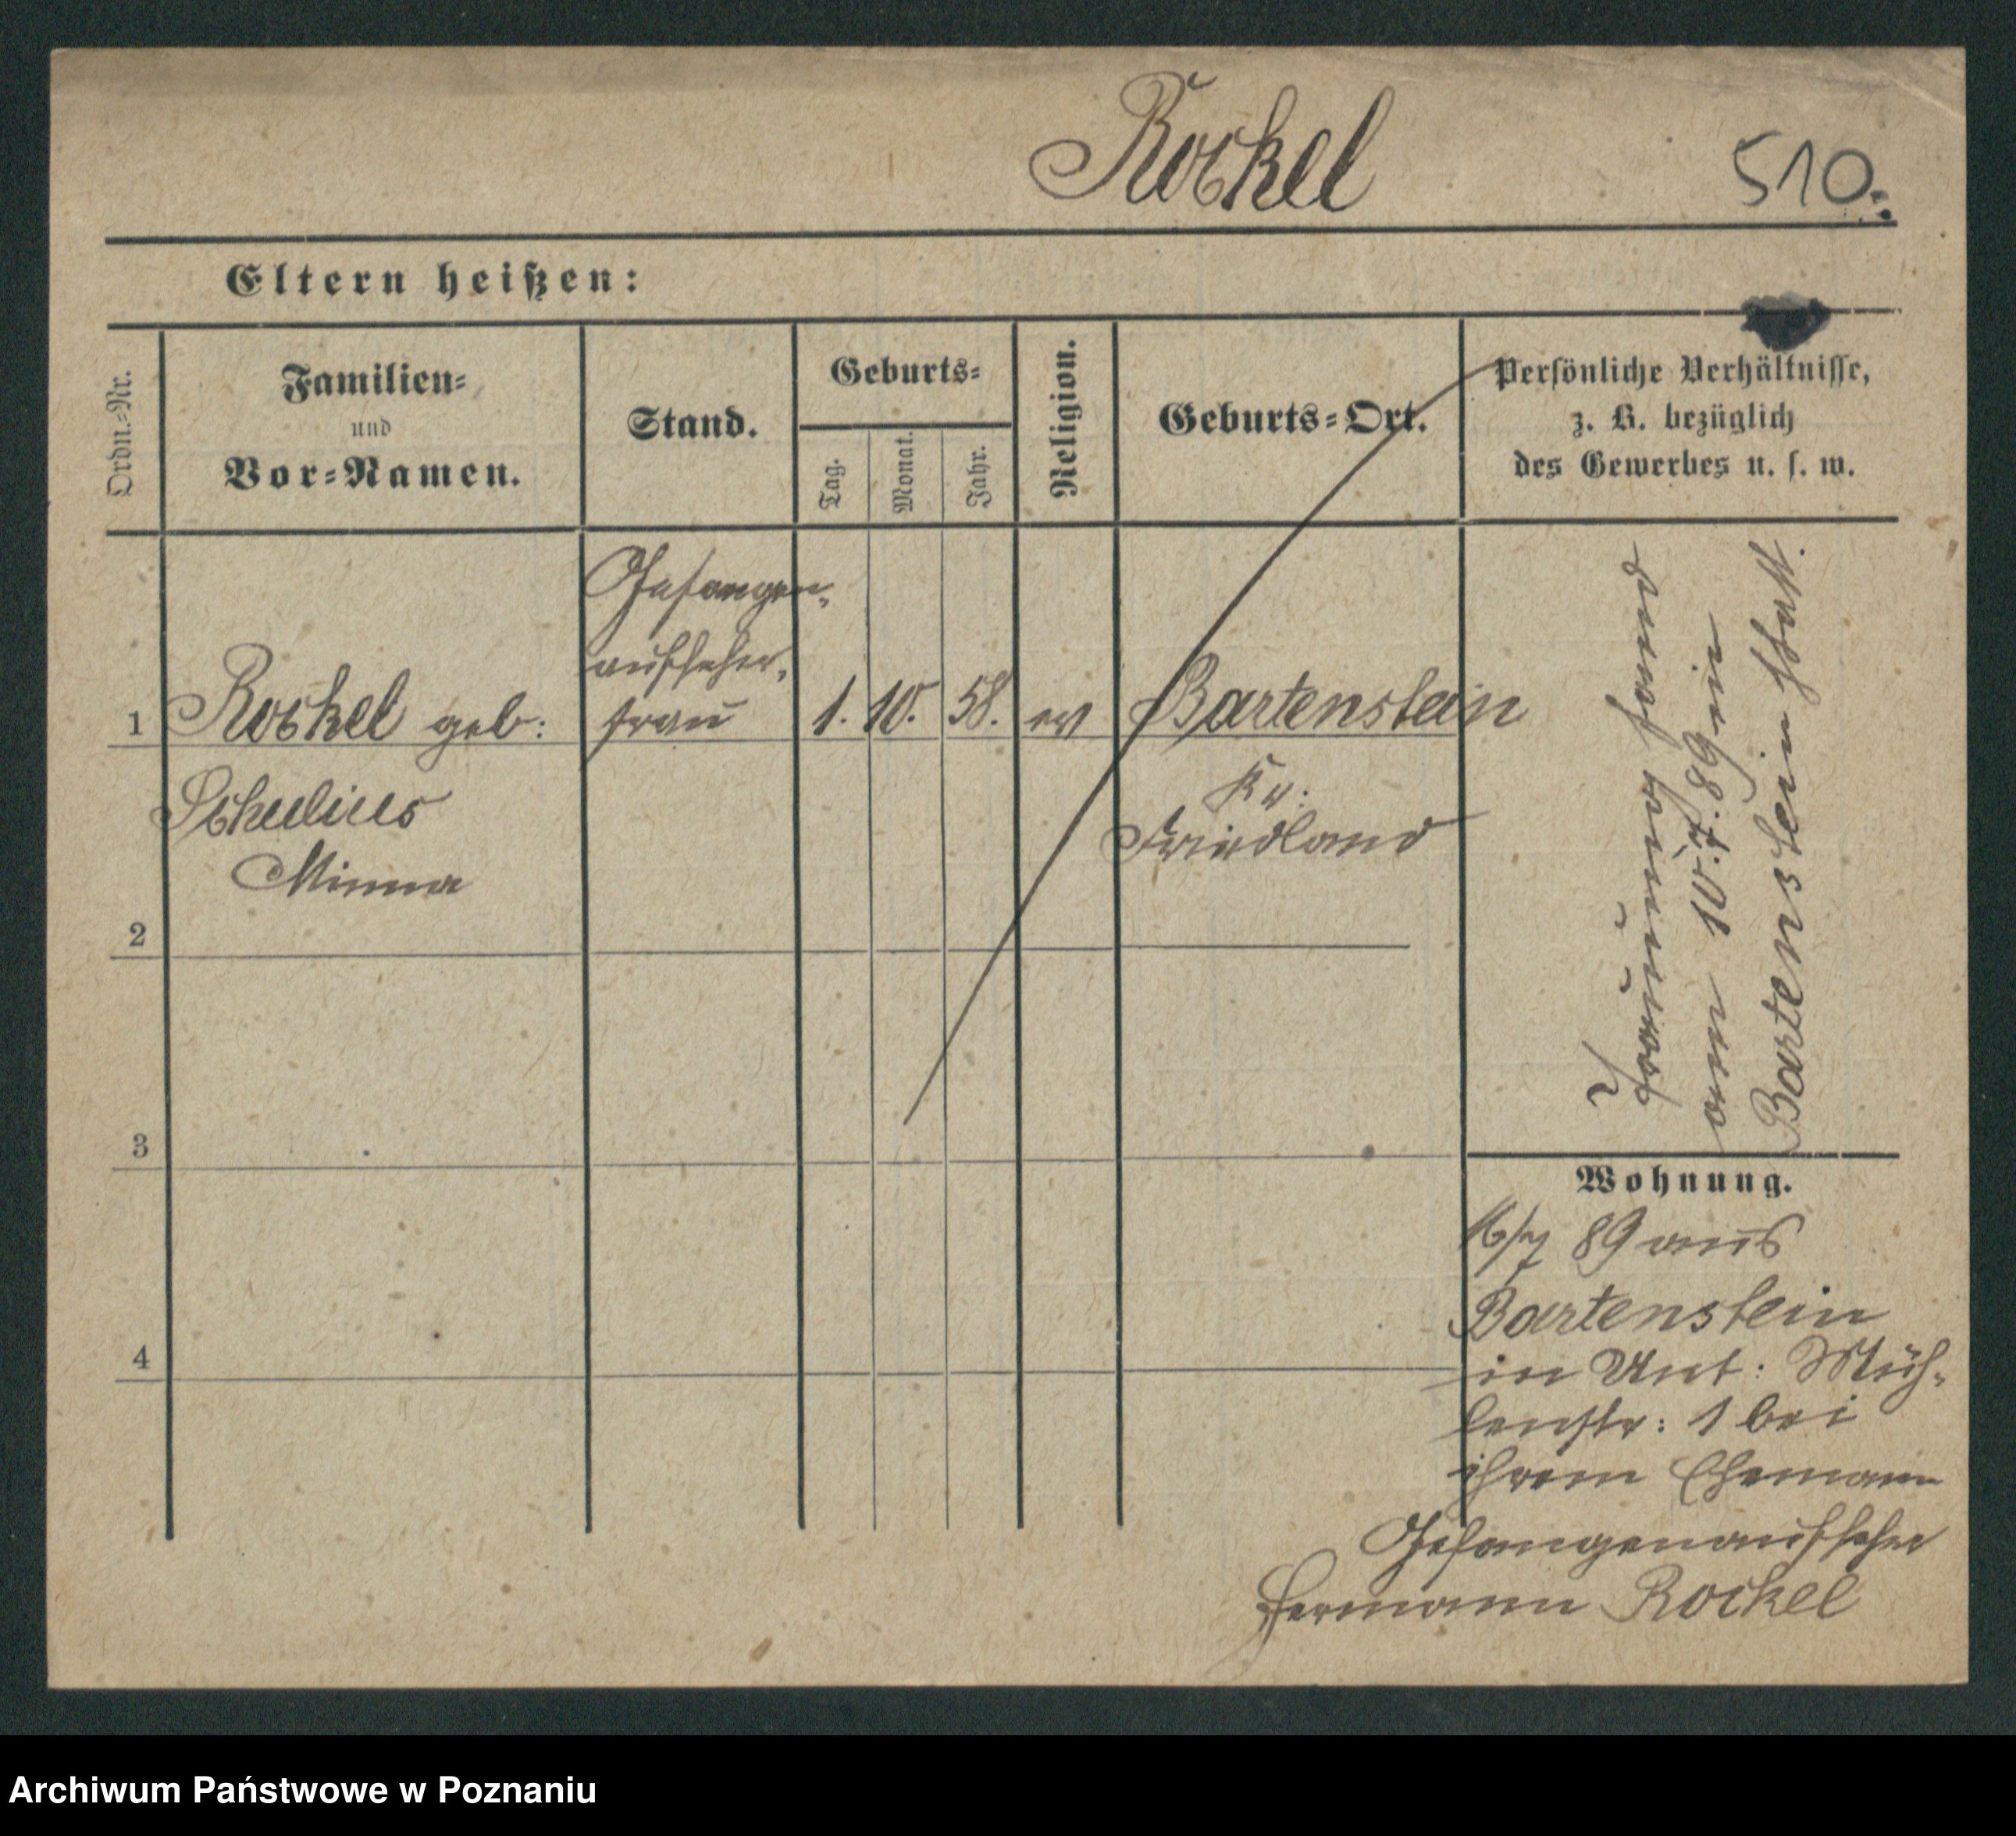 Rockel 510.
Eltern heißen:
Ordn.-Nr.
Familien-
und
Vor-Namen.
Stand.
Geburts-
Tag.
Monat.
Jahr.
Religion.
Geburts-Ort.
Persönliche Verhältnisse,
z. B. bezüglich
des Gewerbes u. s. w.
1
Rockel geb:
Schulius
Minna
Gefangen-
aufseher-
frau
1. 10. 58.
ev
Bartenstein
Kr:
Friedland
Trauung fand
am 10.7.89 in
Bartenstein statt.
2
3
4
Wohnung.
16/7 89 aus
Bartenstein
in Unt: Müh-
lenstr: 1 bei
ihrem Ehemann
Gefangenaufseher
Hermann Rockel
Archiwum Państwowe w Poznaniu